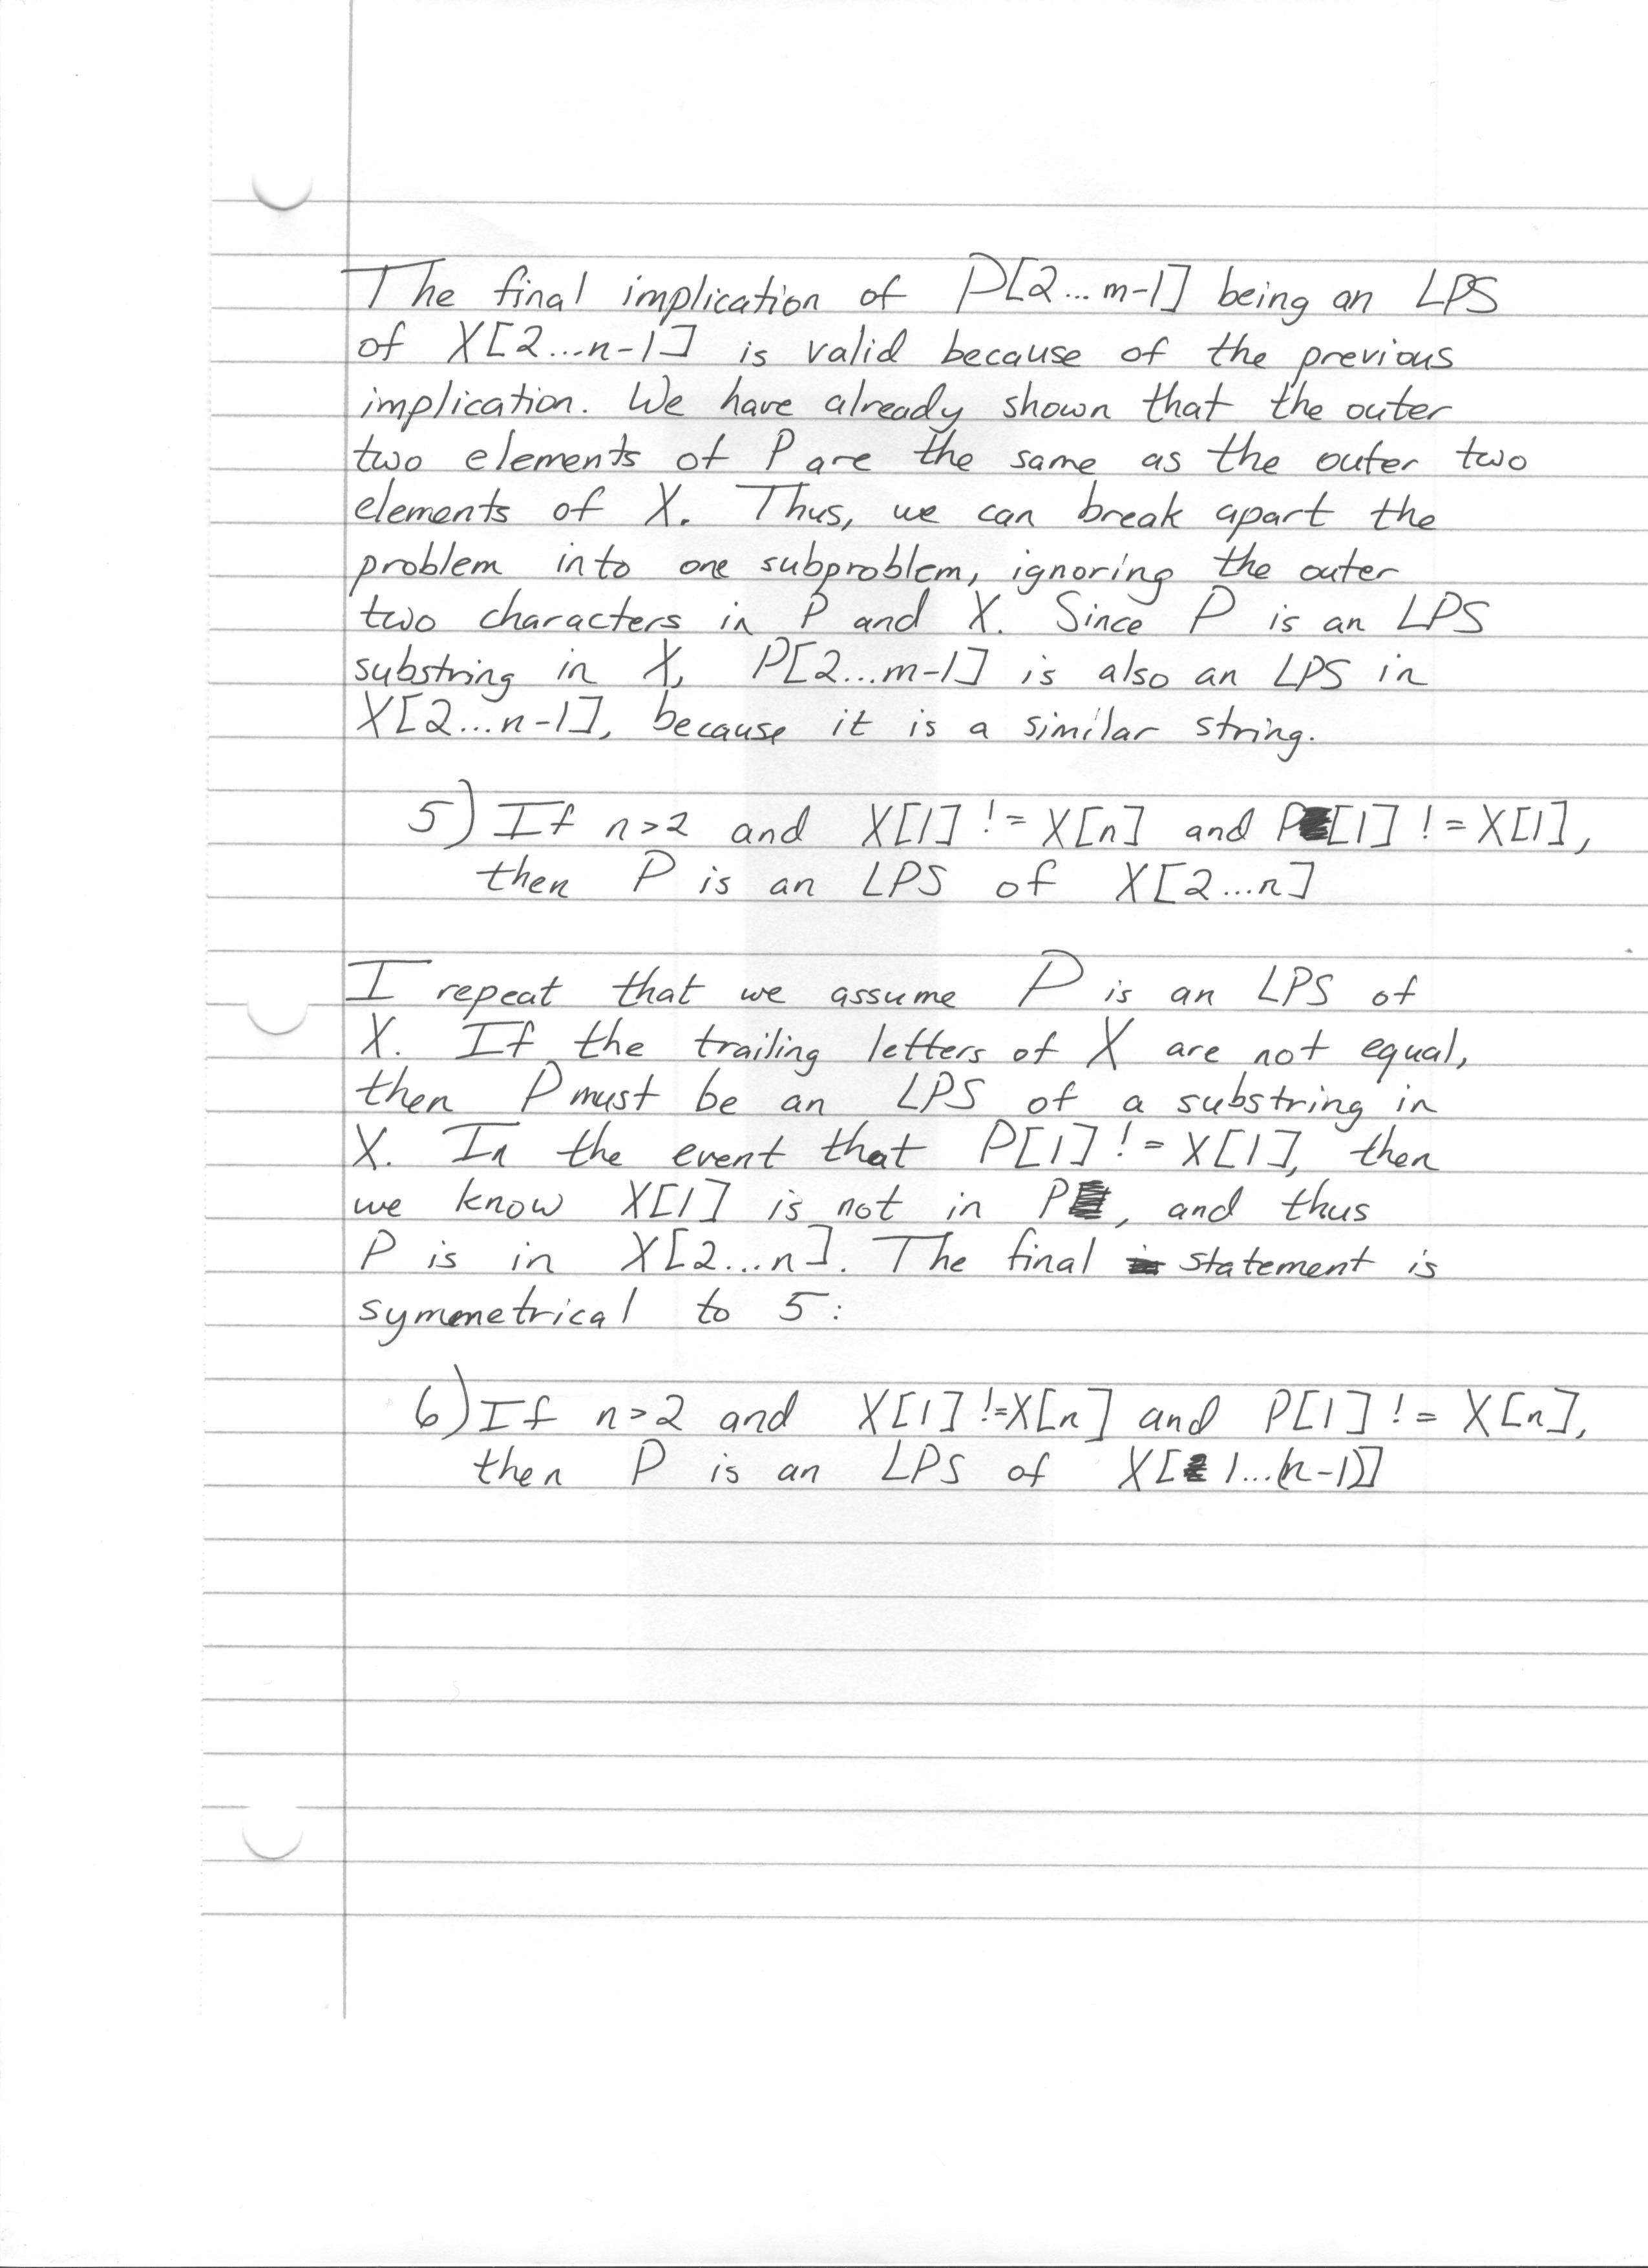 The final implication of P[2...m-1] being an LPS
of X[2...n-1] is valid because of the previous
implication. We have already shown that the outer
two elements of P are the same as the outer two
elements of X. Thus, we can break apart the
problem into one subproblem, ignoring the outer
two characters in P and X. Since P is an LPS
substring in X, P[2...m-1] is also an LPS in
X[2...n-1], because it is a similar string.
5) If n>2 and X[1] != X[n] and P[1] != X[1],
then P is an LPS of X[2...n]
I repeat that we assume P is an LPS of
X. If the trailing letters of X are not equal,
then P must be an LPS of a substring in
X. In the event that P[1] != X[1], then
we know X[1] is not in P, and thus
P is in X[2...n]. The final statement is
symmetrical to 5:
6) If n>2 and X[1] != X[n] and P[1] != X[n],
then P is an LPS of X[1...(n-1)]